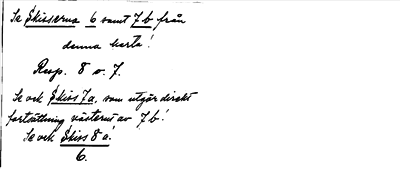 Se Skisserna 6 samt 7b från
denna karta!
Resp. 8 o. 7.
Se ock Skiss 7a, som utgör direkt
fortsättning västerut av 7b!
Se ock Skiss 8a!
6.